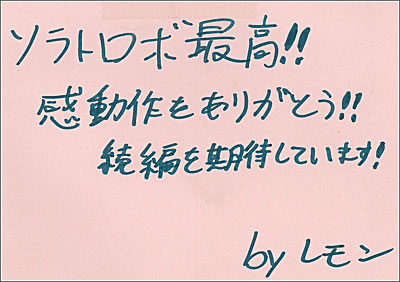 ソラトロボ最高!!
感動作をありがとう!!
続編を期待しています!
by レモン